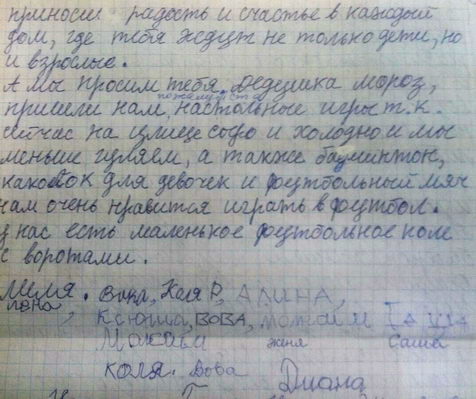 приносиш радость и счастье в каждый
дом, где тебя ждут не только дети, но
и взрослые.
А мы просим тебя, дедушка мороз,
пожалуйста
пришли нам, настольные игры т.к.
сейчас на улице сыро и холодно и мы
меньше гуляем, а также бадминтон,
для девочек и футбольный мяч
нам очень нравится играть в футбол.
У нас есть маленькое футбольное поле
с воротами.
Вика, Коля Р, АЛИНА,
лена, Ксюша, ВОВА,
Максим женя Саша
КОЛЯ. Вова Диана